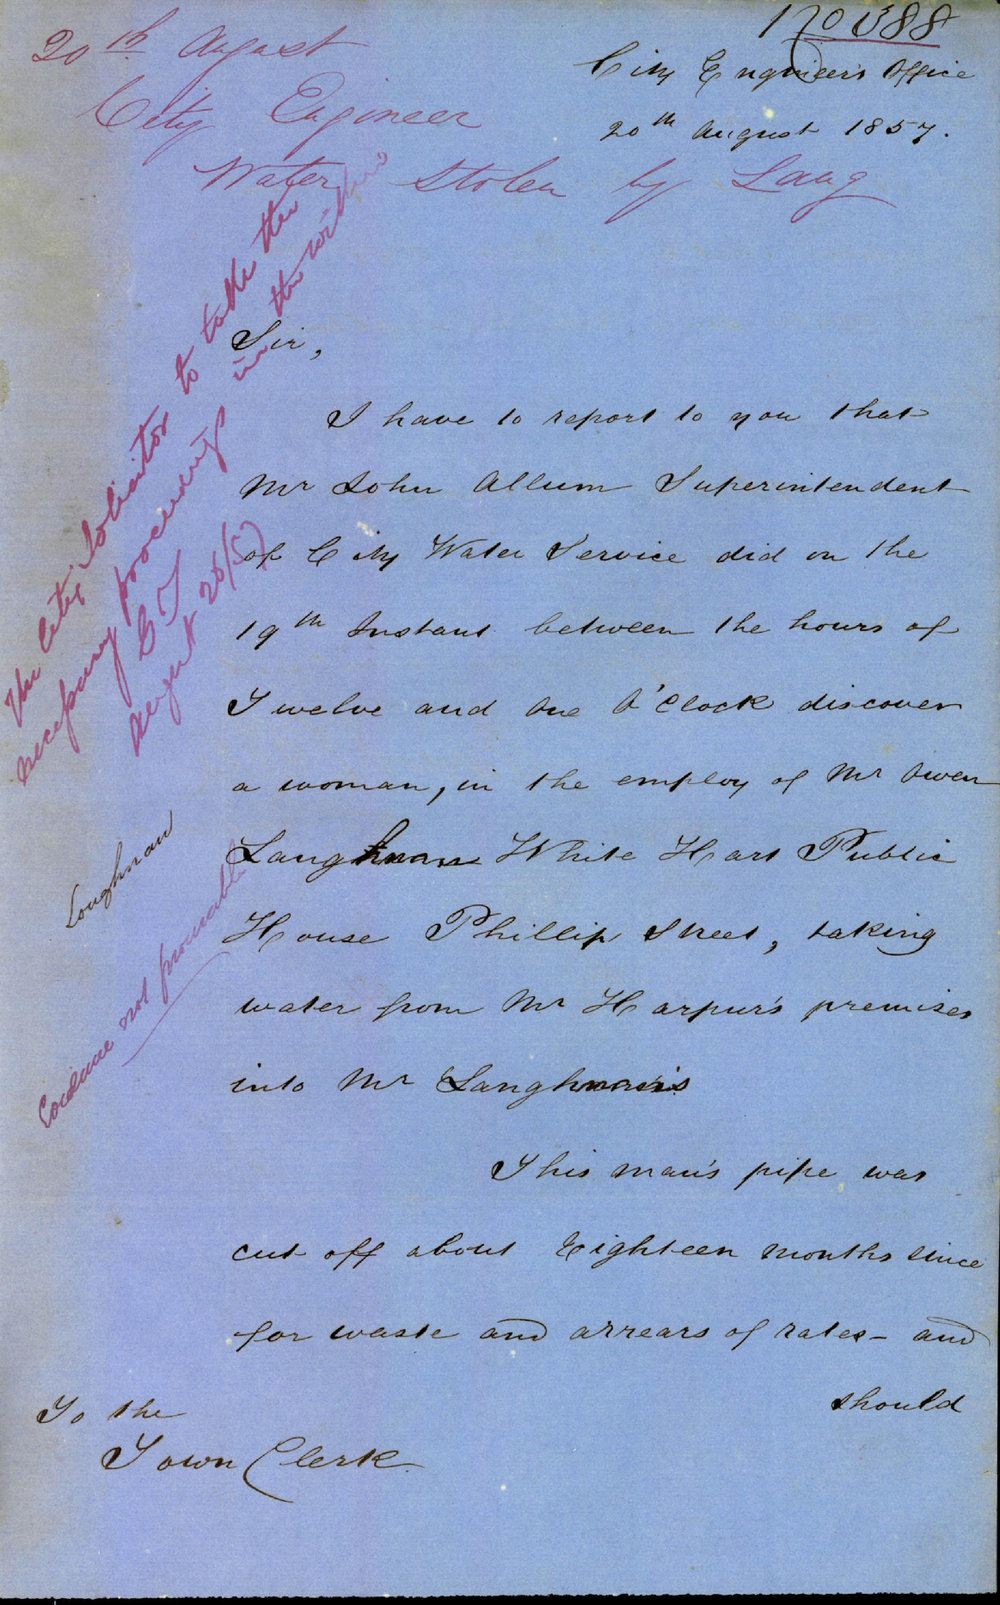 20th August
City Engineer
Water Stolen by Lang
City Engineer's Office
20th August 1857.
The City Solicitor to take the
necessary proceedings in the within
August 26/57
Loughnan
Evidence not procurable
Sir,
I have to report to you that
Mr John Allum Superintendent
of City Water Service did on the
19th Instant between the hours of
Twelve and One O'Clock discover
a woman, in the employ of Mr Owen
Langhnan White Hart Public
House Phillip Street, taking
water from Mr Harpur's premises
into Mr Langhnan's
This man's pipe was
cut off about Eighteen months since
for waste and arrears of rates - and
should
To the
Town Clerk